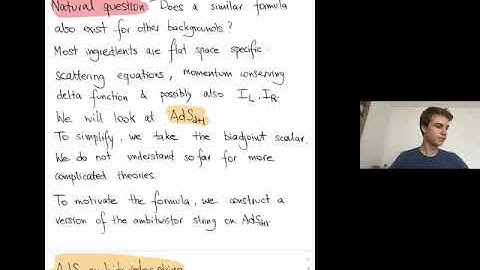 Natural question: Does a similar formula
also exist for other backgrounds?
Most ingredients are flat space specific.
scattering equations, momentum conserving
delta function & possibly also I_L, I_R.
We will look at AdS_{d+1}
To simplify, we take the biadjoint scalar.
We do not understand so far for more
complicated theories.
To motivate the formula, we construct a
version of the ambitwistor string on AdS_{d+1}.
AdS ambitwistor string